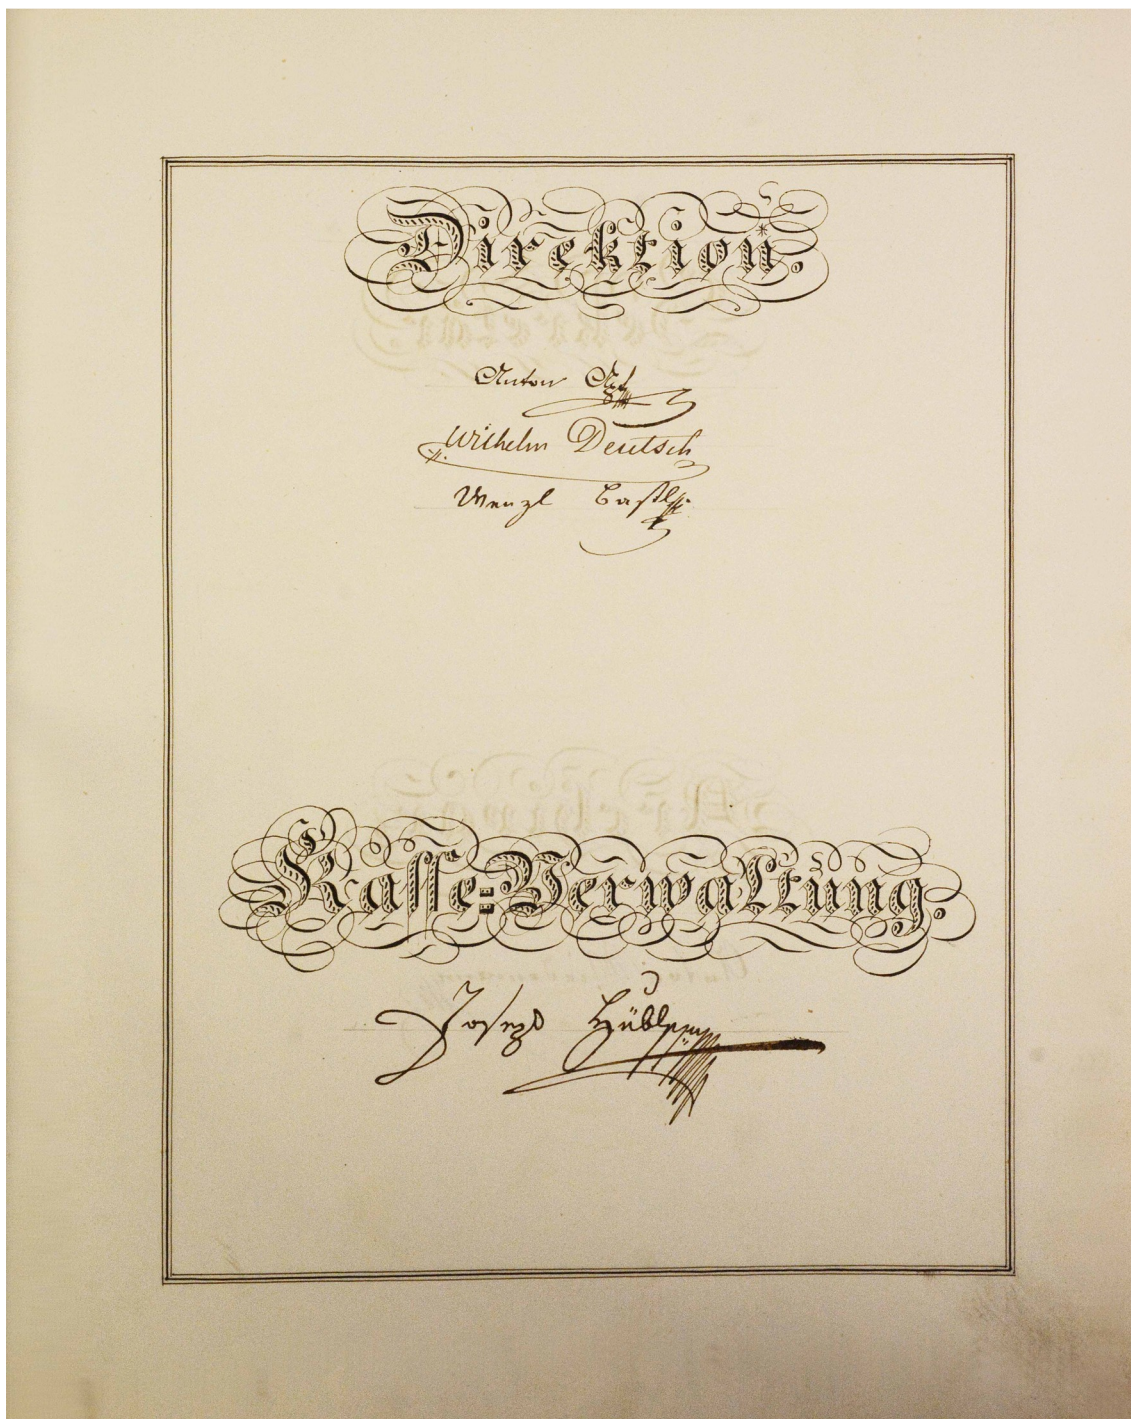 Direktion.
Anton
Wilhelm Deutsch
Wenzl Bastl
Kasse=Verwaltung.
Joseph Hübler